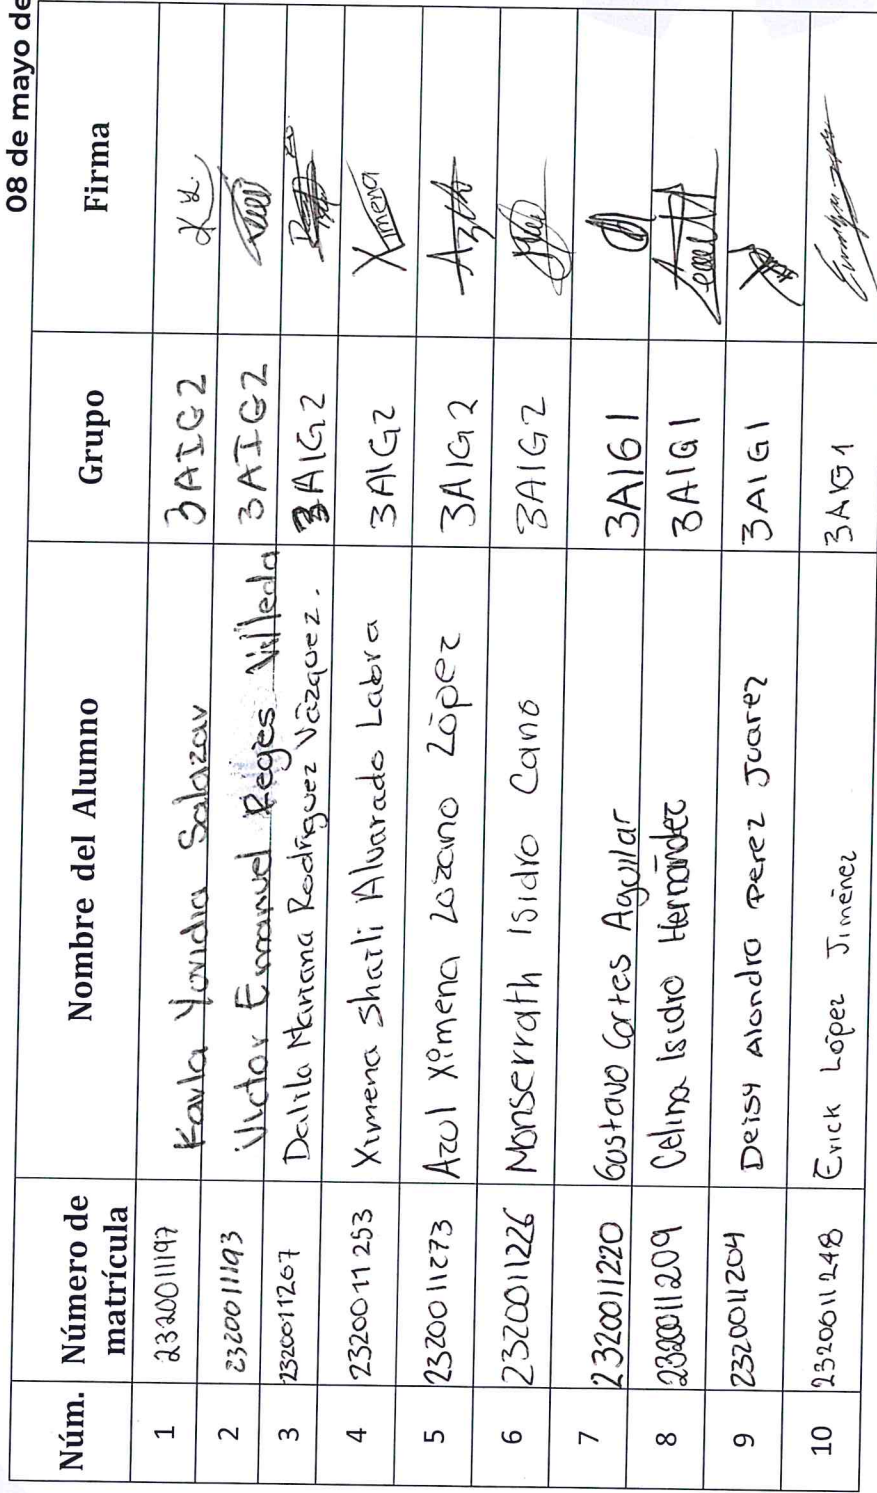 08 de mayo de
Núm. Número de matrícula Nombre del Alumno Grupo Firma
1 2320011197 Karla Yovidia Salazar 3AIG2
2 2320011193 Victor Emanuel Reyes Villeda 3AIG2
3 2320011267 Dalila Mariana Rodríguez Vázquez. 3AIG2
4 2320011253 Ximena Sharli Alvarado Labra 3AIG2 Ximena
5 2320011273 Azul Ximena Lozano López 3AIG2
6 2320011226 Monserrath Isidro Cano 3AIG2
7 2320011220 Gustavo Cortes Aguilar 3AIG1
8 2320011209 Celina Isidro Hernández 3AIG1
9 2320011204 Deisy Alondra Perez Juarez 3AIG1
10 2320011248 Erick López Jiménez 3AIG1